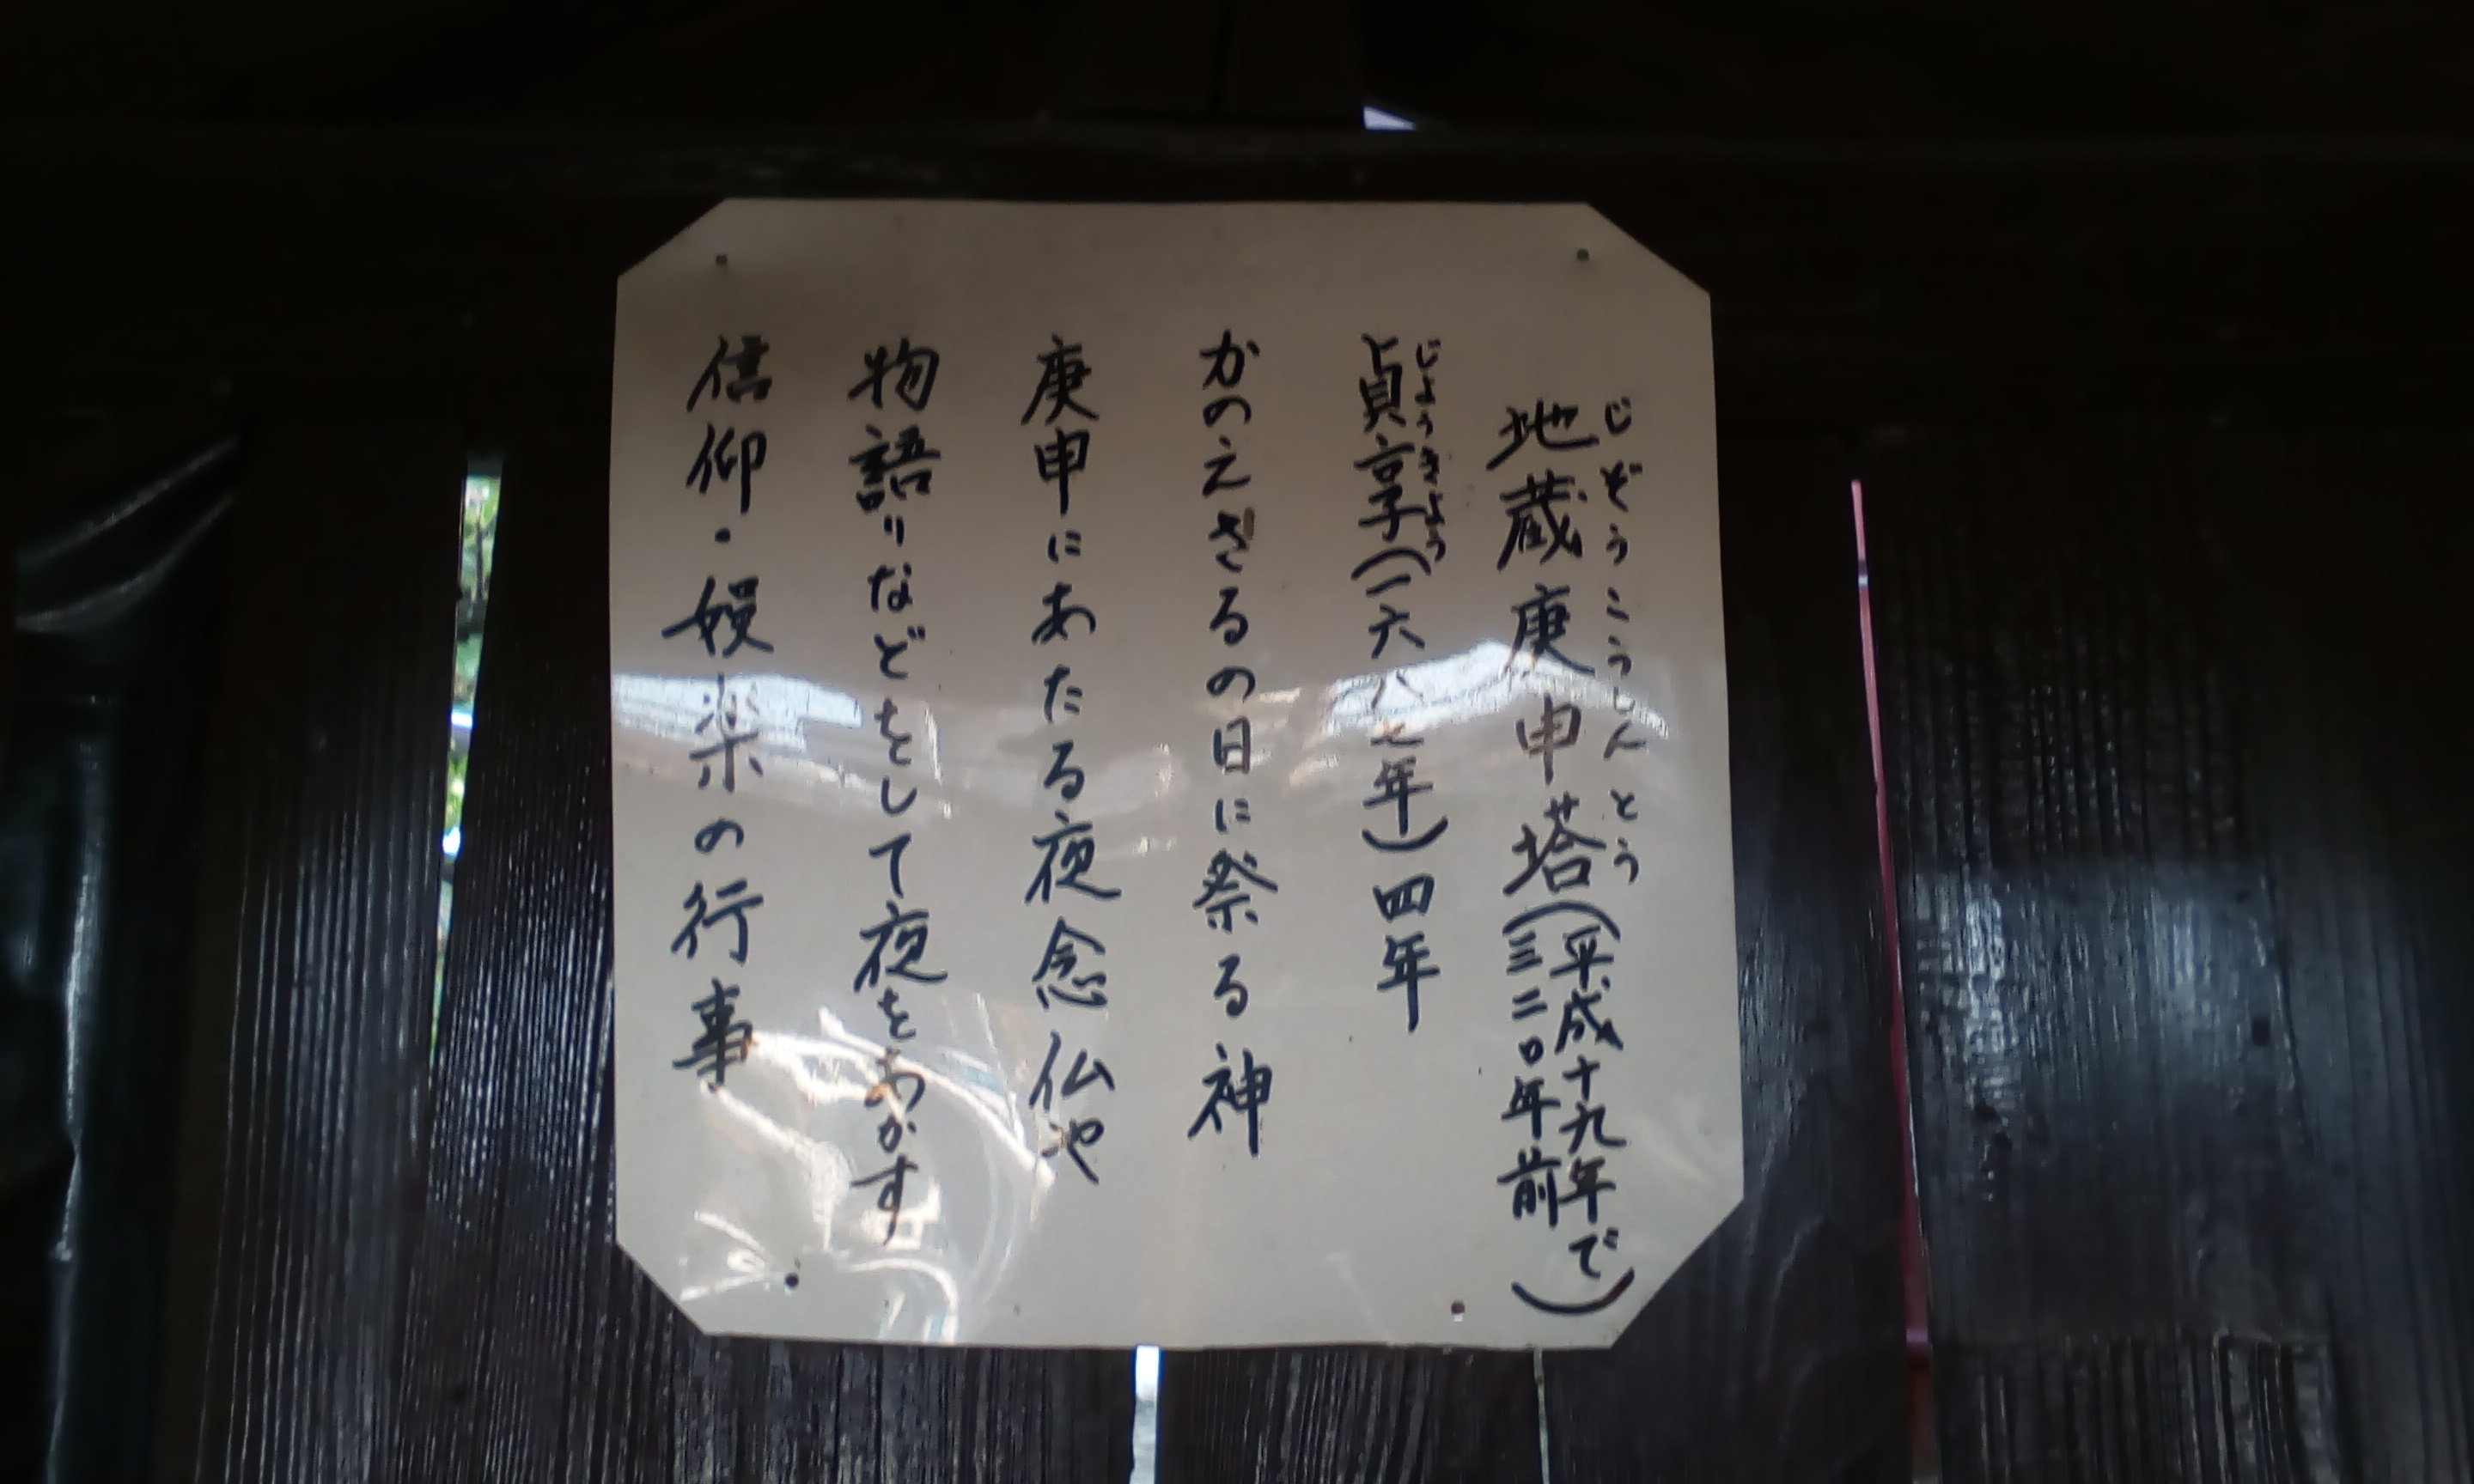 じぞうこうしんとう
地蔵庚申塔(平成十九年で
三二〇年前)
じょうきょう
貞享(一六八七年)四年
かのえさるの日に祭る神
庚申にあたる夜念仏や
物語りなどをして夜をあかす
信仰・娯楽の行事